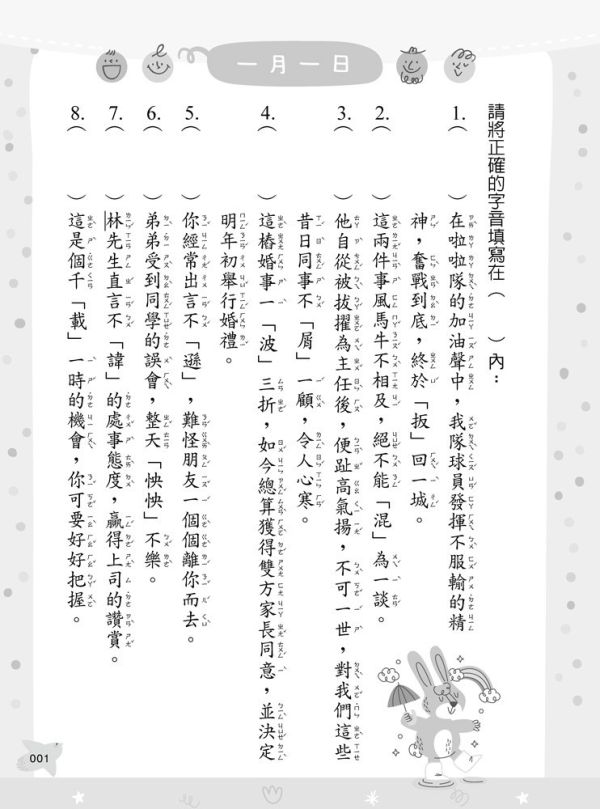 一月一日
請將正確的字音填寫在（　　）內：
1.（　　）在啦啦隊的加油聲中，我隊球員發揮不服輸的精
神，奮戰到底，終於「扳」回一城。
2.（　　）這兩件事風馬牛不相及，絕不能「混」為一談。
3.（　　）他自從被拔擢為主任後，便趾高氣揚，不可一世，對我們這些
昔日同事不「屑」一顧，令人心寒。
4.（　　）這樁婚事一「波」三折，如今總算獲得雙方家長同意，並決定
明年初舉行婚禮。
5.（　　）你經常出言不「遜」，難怪朋友一個個離你而去。
6.（　　）弟弟受到同學的誤會，整天「怏怏」不樂。
7.（　　）林先生直言不「諱」的處事態度，贏得上司的讚賞。
8.（　　）這是個千「載」一時的機會，你可要好好把握。
001